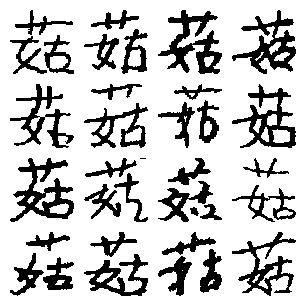 菇菇菇菇
菇菇菇菇
菇菇菇菇
菇菇菇菇